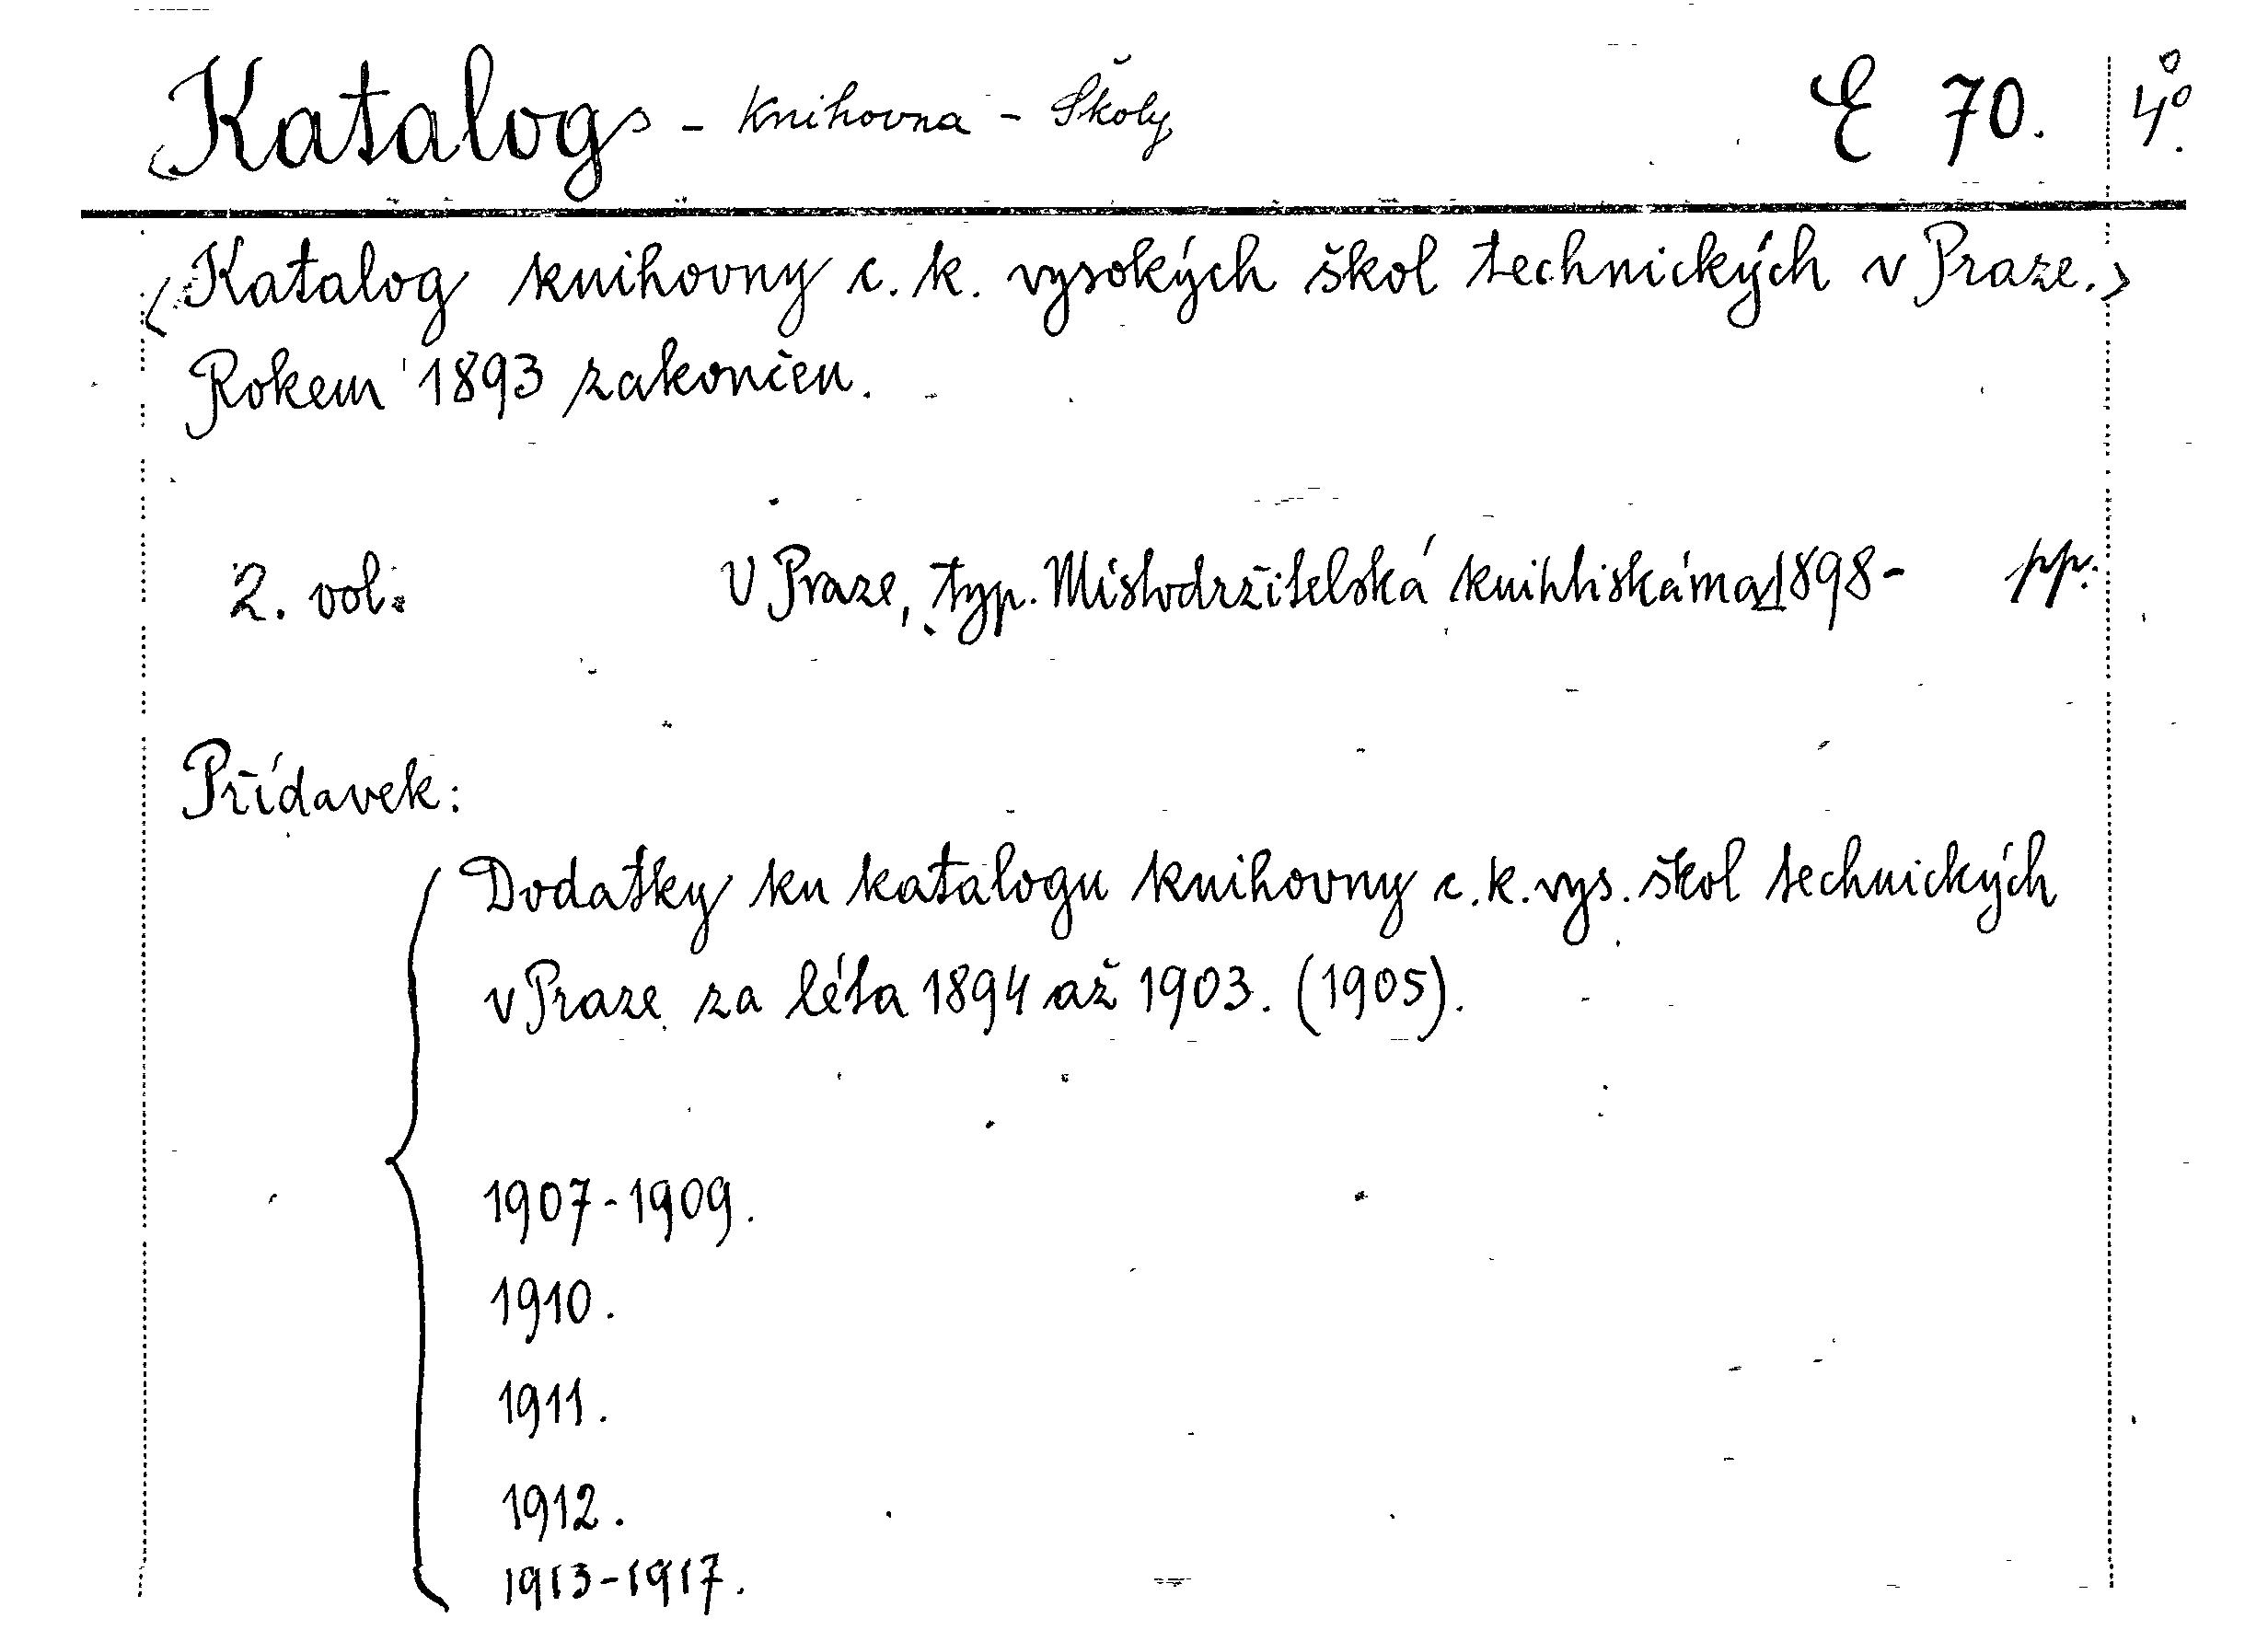 Katalog - Knihovna - Školy E 70. 4°
<Katalog knihovny c. k. vysokých škol technických v Praze.>
Rokem 1893 zakončen.
2. vol. V Praze, typ. Místodržitelská knihtiskárna 1898- pp.
Přídavek:
Dodatky ku katalogu knihovny c. k. vys. škol technických
v Praze za léta 1894 až 1903. (1905).
1907-1909.
1910.
1911.
1912.
1913-1917.